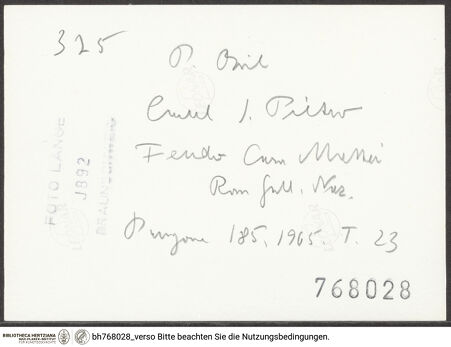 325
P. Bril
I. Pietro
Rom Gall. Naz.
185, 1965. T. 23
FOTO LANGE
J892
BRAUNSCHWEIG
768028
BIBLIOTHECA HERTZIANA
MAX-PLANCK-INSTITUT
FÜR KUNSTGESCHICHTE
bh768028_verso Bitte beachten Sie die Nutzungsbedingungen.